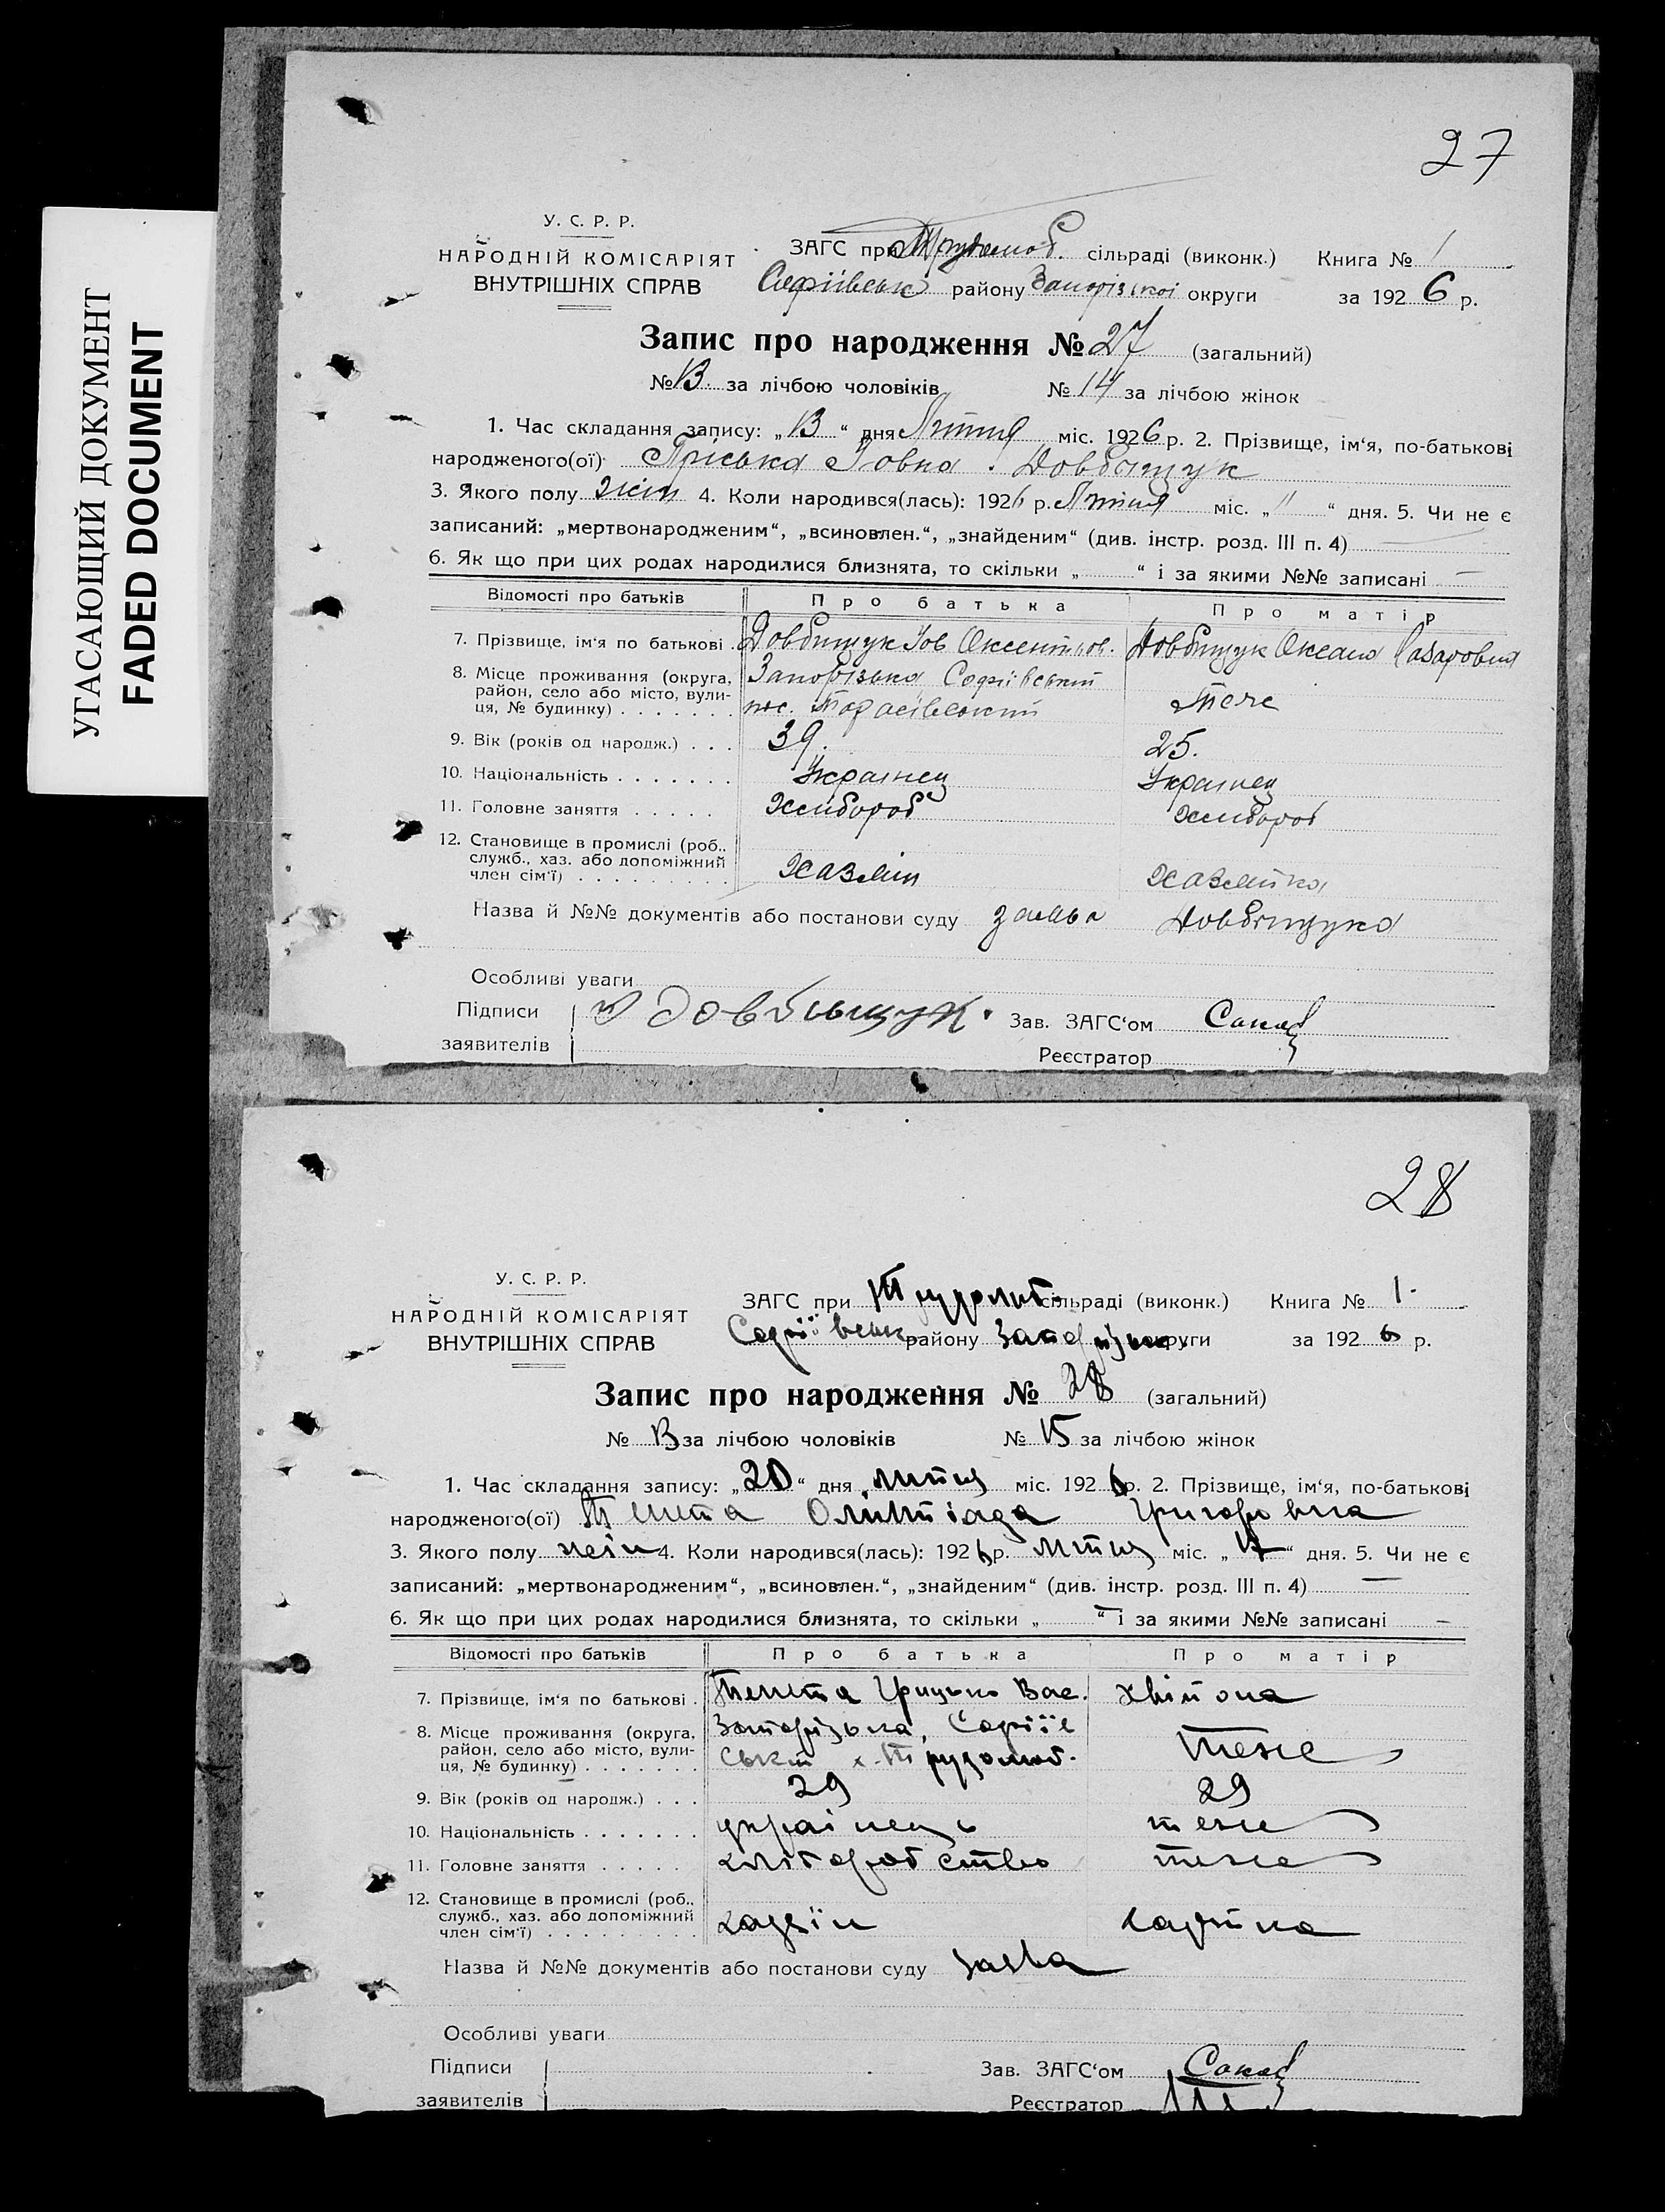 УГАСАЮЩИЙ ДОКУМЕНТ
FADED DOCUMENT
27
У. С. Р. Р.
НАРОДНІЙ КОМІСАРІЯТ
ВНУТРІШНІХ СПРАВ
ЗАГС при Трудолюб. сільраді (виконк.) Книга № 1
Софіївськ району Запорізької округи за 1926 р.
Запис про народження № 27 (загальний)
№ 13 за лічбою чоловіків № 14 за лічбою жінок
1. Час складання запису: „13“ дня Лютия міс. 1926 р. 2. Прізвище, ім‘я, по-батькові
народженого(ої) Пріська Іовна Довбищук
3. Якого полу жін 4. Коли народився(лась): 1926 р. Лютия міс. „11“ дня. 5. Чи не є
записаний: „мертвонародженим“, „всиновлен.“, „знайденим“ (див. інстр. розд. III п. 4) —
6. Як що при цих родах народилися близнята, то скільки „ “ і за якими №№ записані —
Відомості про батьків Про батька Про матір
7. Прізвище, ім‘я по батькові . Довбищук Іов Оксентіов. Довбищук Оксана Лазаровна
8. Місце проживання (округа, район, село або місто, вулиця, № будинку) . . . . . . . Запорізька Софіївський
пос. Тарасівський Теже
9. Вік (років од народж.) . . . 39. 25.
10. Національність . . . . . . . Украінец Украінец
11. Головне заняття . . . . . Хлибороб Хлибороб
12. Становище в промислі (роб., служб., хаз. або допоміжний член сім‘ї) . . . . . . . . . Хазяін Хазяйка
Назва й №№ документів або постанови суду заява Довбищука
Особливі уваги
Підписи Довбыщук. Зав. ЗАГС‘ом
заявителів Реєстратор
28
У. С. Р. Р.
НАРОДНІЙ КОМІСАРІЯТ
ВНУТРІШНІХ СПРАВ
ЗАГС при Трудолюб. сільраді (виконк.) Книга № 1.
Софіївськ. району Запорізьк. округи за 1926 р.
Запис про народження № 28 (загальний)
№ 13 за лічбою чоловіків № 15 за лічбою жінок
1. Час складання запису: „20“ дня лютия міс. 1926 р. 2. Прізвище, ім‘я, по-батькові
народженого(ої) Олімпіада Григоровна
3. Якого полу жін 4. Коли народився(лась): 1926 р. лютия міс. „17“ дня. 5. Чи не є
записаний: „мертвонародженим“, „всиновлен.“, „знайденим“ (див. інстр. розд. III п. 4) —
6. Як що при цих родах народилися близнята, то скільки „ — “ і за якими №№ записані —
Відомості про батьків Про батька Про матір
7. Прізвище, ім‘я по батькові . Грицько Вас. Хвіпона
8. Місце проживання (округа, район, село або місто, вулиця, № будинку) . . . . . . . Запорізька, Софіїв
ськи х. Трудолюб. теже
9. Вік (років од народж.) . . . 29 29
10. Національність . . . . . . . украінець теже
11. Головне заняття . . . . . хліборобство теже
12. Становище в промислі (роб., служб., хаз. або допоміжний член сім‘ї) . . . . . . . . . хазяїн хазяйка
Назва й №№ документів або постанови суду заява
Особливі уваги
Підписи Зав. ЗАГС‘ом
заявителів Реєстратор